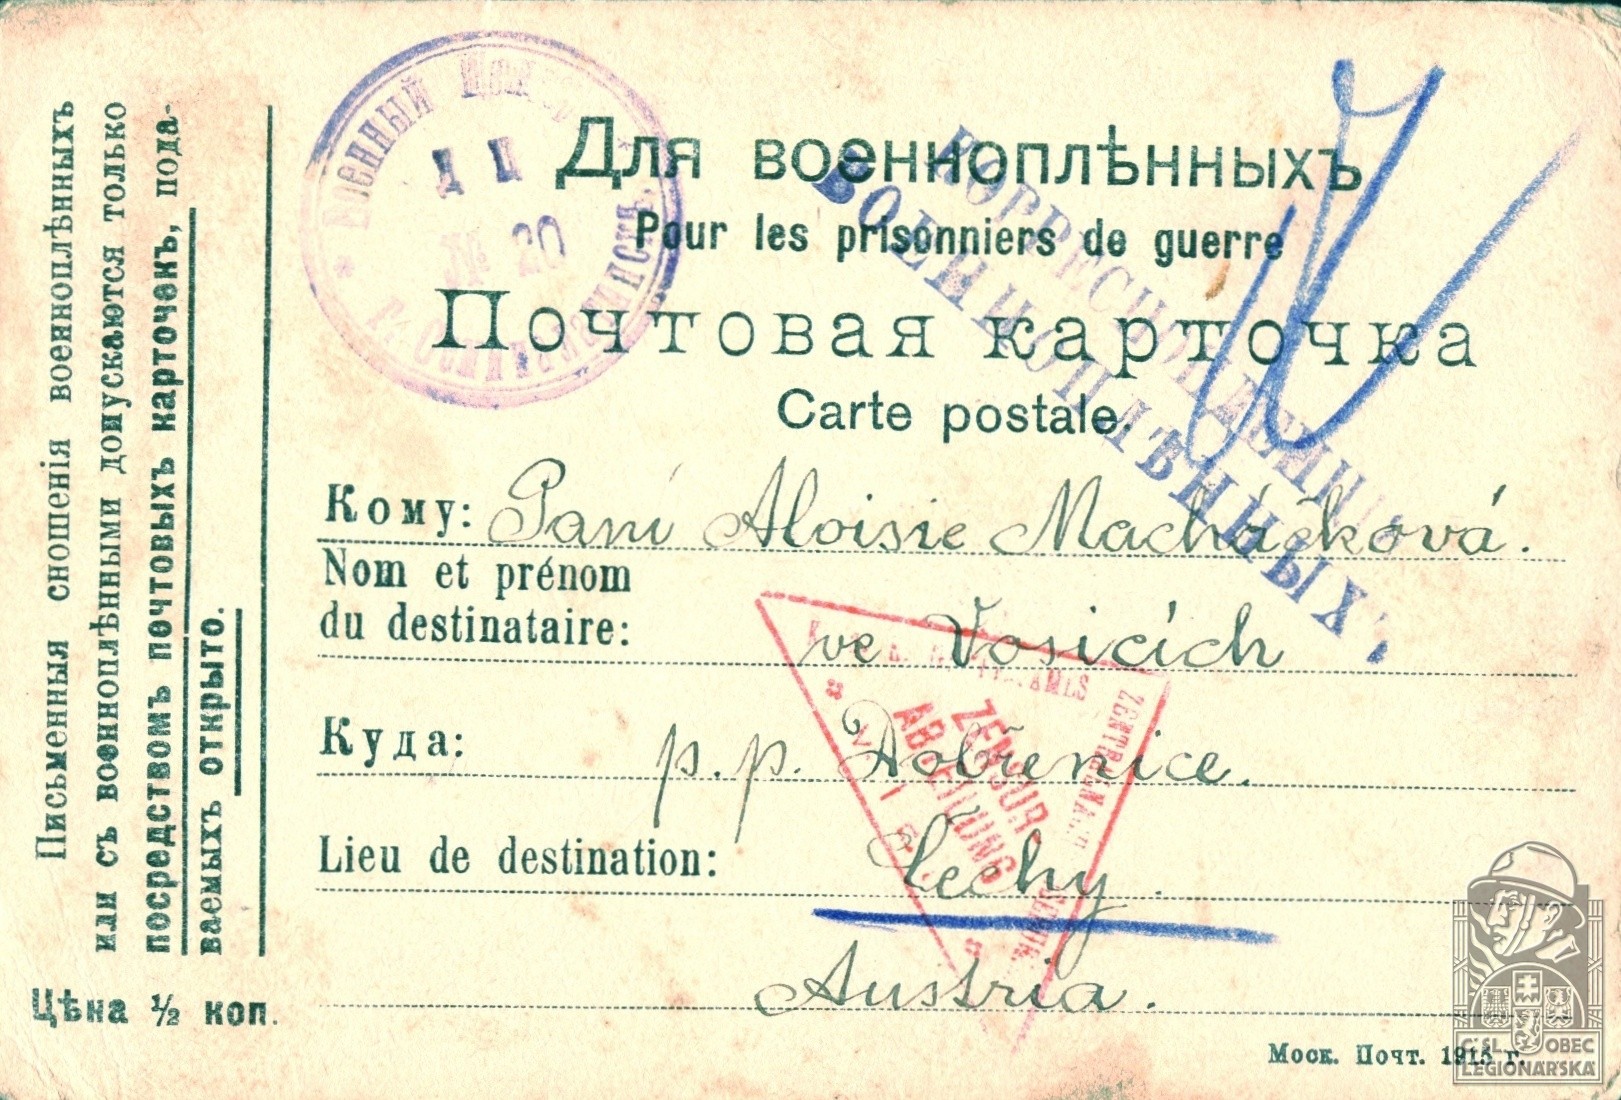 Письменныя сношенія военноплѣнныхъ
или съ военноплѣнными допускаются только
посредствомъ почтовыхъ карточекъ, пода-
ваемыхъ открыто.
Цѣна ½ коп.
Военный Цензоръ
Д Ц
№ 20
Для военноплѣнныхъ
Pour les prisonniers de guerre
Почтовая карточка
Carte postale.
КОРРЕСПОНДЕНЦІЯ
ВОЕННОПЛѢННЫХЪ
Кому: Paní Aloisie Macháčková.
Nom et prénom
du destinataire: ve Vosicích
Куда: p. p. Dobřenice.
Lieu de destination: Čechy.
Austria.
ZENSUR
ABTEILUNG
Моск. Почт. 1915 г.
ČSL. OBEC
LEGIONÁŘSKÁ